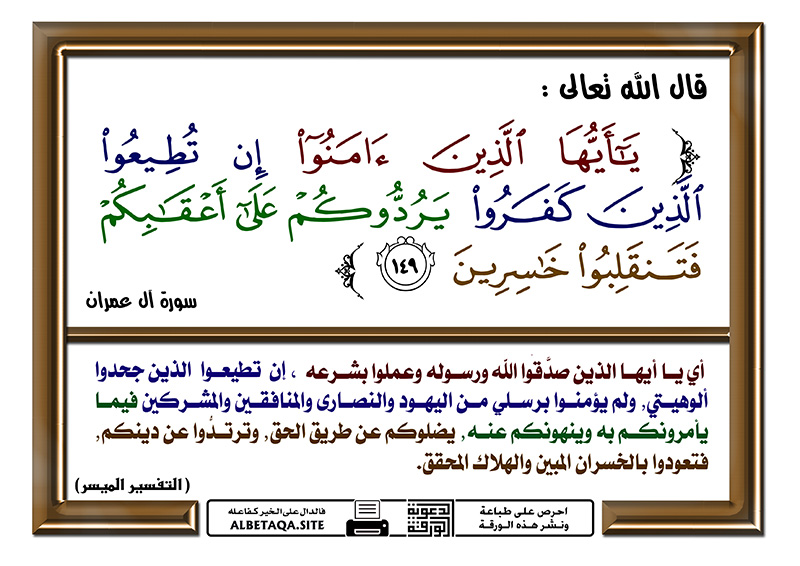 قال الله تعالى :
﴿ يَٰٓأَيُّهَا ٱلَّذِينَ ءَامَنُوٓا۟ إِن تُطِيعُوا۟
ٱلَّذِينَ كَفَرُوا۟ يَرُدُّوكُمْ عَلَىٰٓ أَعْقَٰبِكُمْ
فَتَنقَلِبُوا۟ خَٰسِرِينَ ١٤٩ ﴾
سورة آل عمران
أي يا أيها الذين صدَّقوا الله ورسوله وعملوا بشرعه ، إن تطيعوا الذين جحدوا
ألوهيتي, ولم يؤمنوا برسلي من اليهود والنصارى والمنافقين والمشركين فيما
يأمرونكم به وينهونكم عنه, يضلوكم عن طريق الحق, وترتدُّوا عن دينكم,
فتعودوا بالخسران المبين والهلاك المحقق.
(التفسير الميسر)
احرص على طباعة
ونشر هذه الورقة
الورقة
الدعوية
فالدال على الخير كفاعله
ALBETAQA.SITE